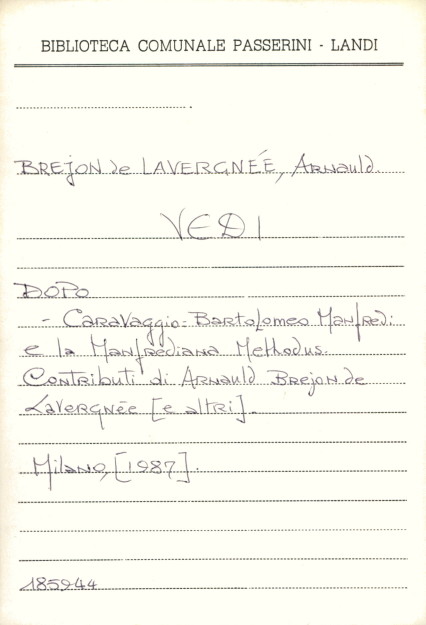 BIBLIOTECA COMUNALE PASSERINI - LANDI
BREJON de LAVERGNÉE, Arnauld.
VEDI
DOPO
- Caravaggio: Bartolomeo Manfredi
e la Manfrediana Methodus.
Contributi di Arnauld Brejon de
Lavergnée [e altri].
Milano, [1987].
185944